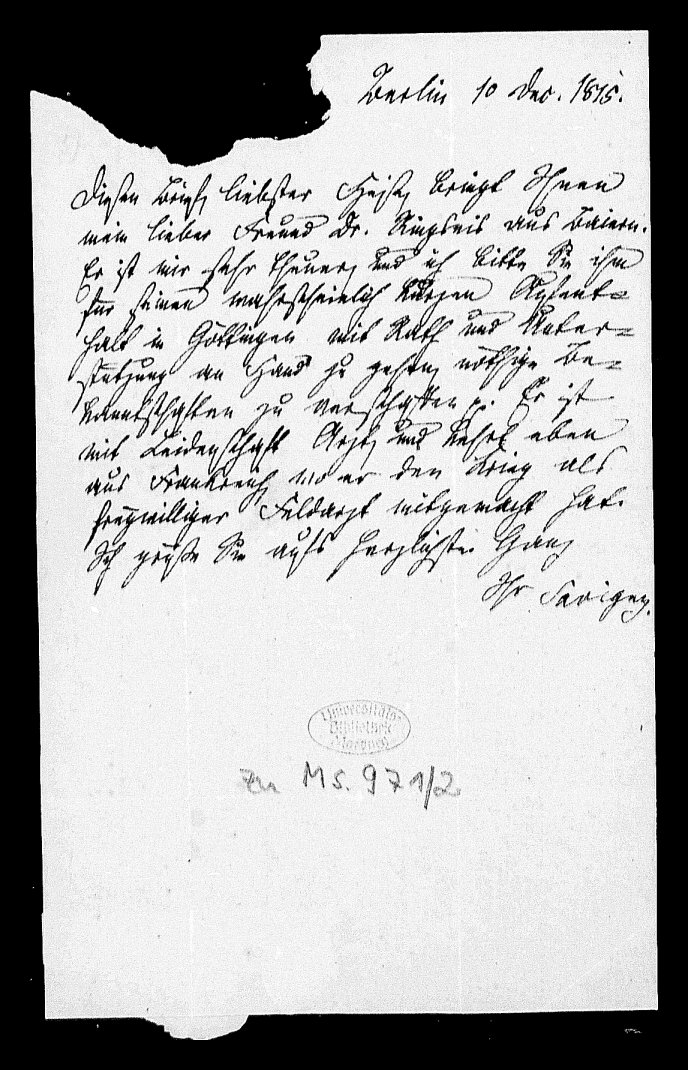 Berlin 10 Dec. 1815.
Diesen Brief, liebster Heise, bringt Ihnen
mein lieber Freund Dr. Ringseis aus Baiern.
Er ist mir sehr theuer, und ich bitte Sie ihm
für seinen wahrscheinlich kurzen Aufent=
halt in Göttingen mit Rath und Unter=
stützung an Hand zu gehen, nöthige Be=
kanntschaften zu verschaffen p. Er ist
mit Leidenschaft Arzt, und kehrt eben
aus Frankreich, wo er den Krieg als
freywilliger Feldarzt mitgemacht hat.
Ich grüße Sie aufs herzlichste. Ganz
Ihr Savigny.
Universitäts-
Bibliothek
Marburg
Zu Ms. 971/2